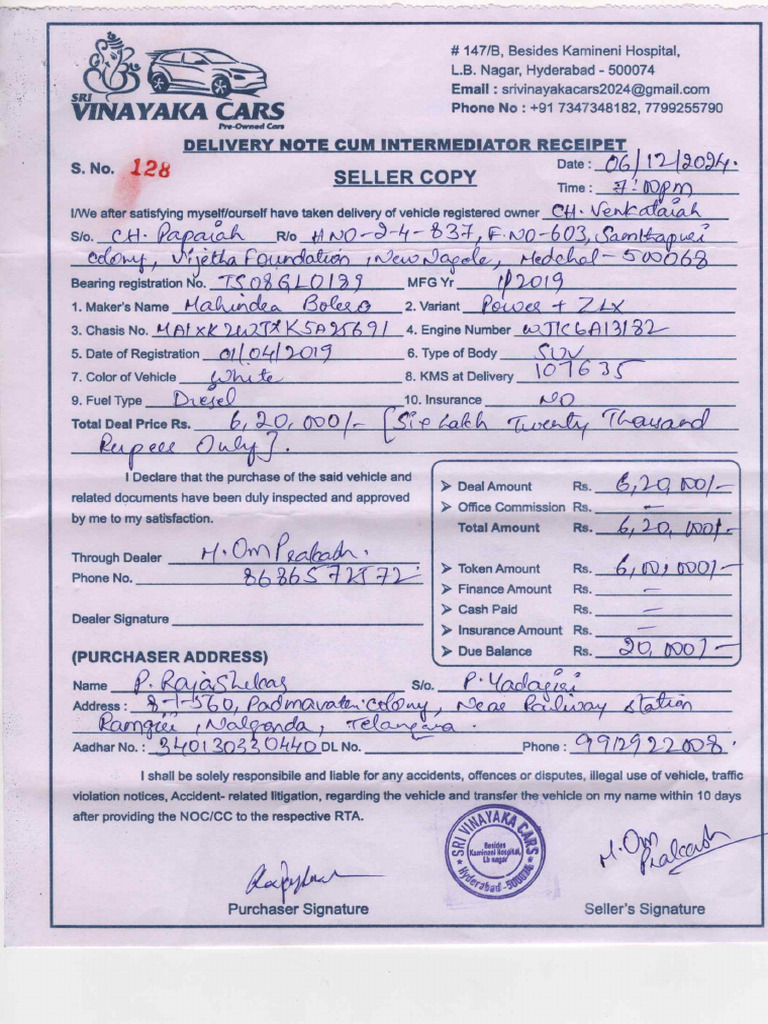 SRI
VINAYAKA CARS
Pre-Owned Cars
# 147/B, Besides Kamineni Hospital,
L.B. Nagar, Hyderabad - 500074
Email : srivinayakacars2024@gmail.com
Phone No : +91 7347348182, 7799255790
DELIVERY NOTE CUM INTERMEDIATOR RECEIPET
S. No. 128
SELLER COPY
Date : 06/12/2024.
Time : 7:00pm
I/We after satisfying myself/ourself have taken delivery of vehicle registered owner CH. Venkataiah
S/o. CH. Papaiah R/o HNO-2-4-837, F.NO-603, Samthapuri
colony, Vijetha Foundation, New Nagole, Medchal - 500068
Bearing registration No. TS08GL0189 MFG Yr 1/2019
1. Maker's Name Mahindra Bolero 2. Variant Power + ZLX
3. Chasis No. MA1XK2WTXK5A25691 4. Engine Number WJK6A13182
5. Date of Registration 01/04/2019 6. Type of Body SUV
7. Color of Vehicle White 8. KMS at Delivery 107635
9. Fuel Type Diesel 10. Insurance NO
Total Deal Price Rs. 6,20,000/- [Six Lakh Twenty Thousand
Rupees Only].
I Declare that the purchase of the said vehicle and
related documents have been duly inspected and approved
by me to my satisfaction.
Through Dealer M. Om Prakash.
Phone No. 8686572572
Dealer Signature
Deal Amount Rs. 6,20,000/-
Office Commission Rs. -
Total Amount Rs. 6,20,000/-
Token Amount Rs. 6,00,000/-
Finance Amount Rs. -
Cash Paid Rs. -
Insurance Amount Rs. -
Due Balance Rs. 20,000/-
(PURCHASER ADDRESS)
Name P. Rajashekar S/o. P. Yadagiri
Address : 8-1-560, Padmavathi colony, Near Railway Station
Ramgiri, Nalgonda, Telangana.
Aadhar No. : 340130330440 DL No. Phone : 9912922008.
I shall be solely responsibile and liable for any accidents, offences or disputes, illegal use of vehicle, traffic
violation notices, Accident- related litigation, regarding the vehicle and transfer the vehicle on my name within 10 days
after providing the NOC/CC to the respective RTA.
SRI VINAYAKA CARS
Besides
Kamineni Hospital,
Lb nagar
Hyderabad-500074
M. Om
Prakash
Purchaser Signature
Seller's Signature